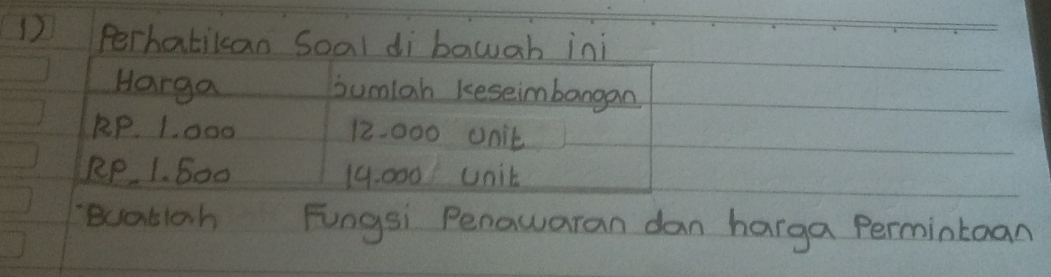 1) Perhatikan Soal di bawah ini
Harga Jumlah Keseimbangan
RP. 1.000 12.000 Unit
RP. 1.500 14.000 Unit
Buatlah Fungsi Penawaran dan harga Permintaan